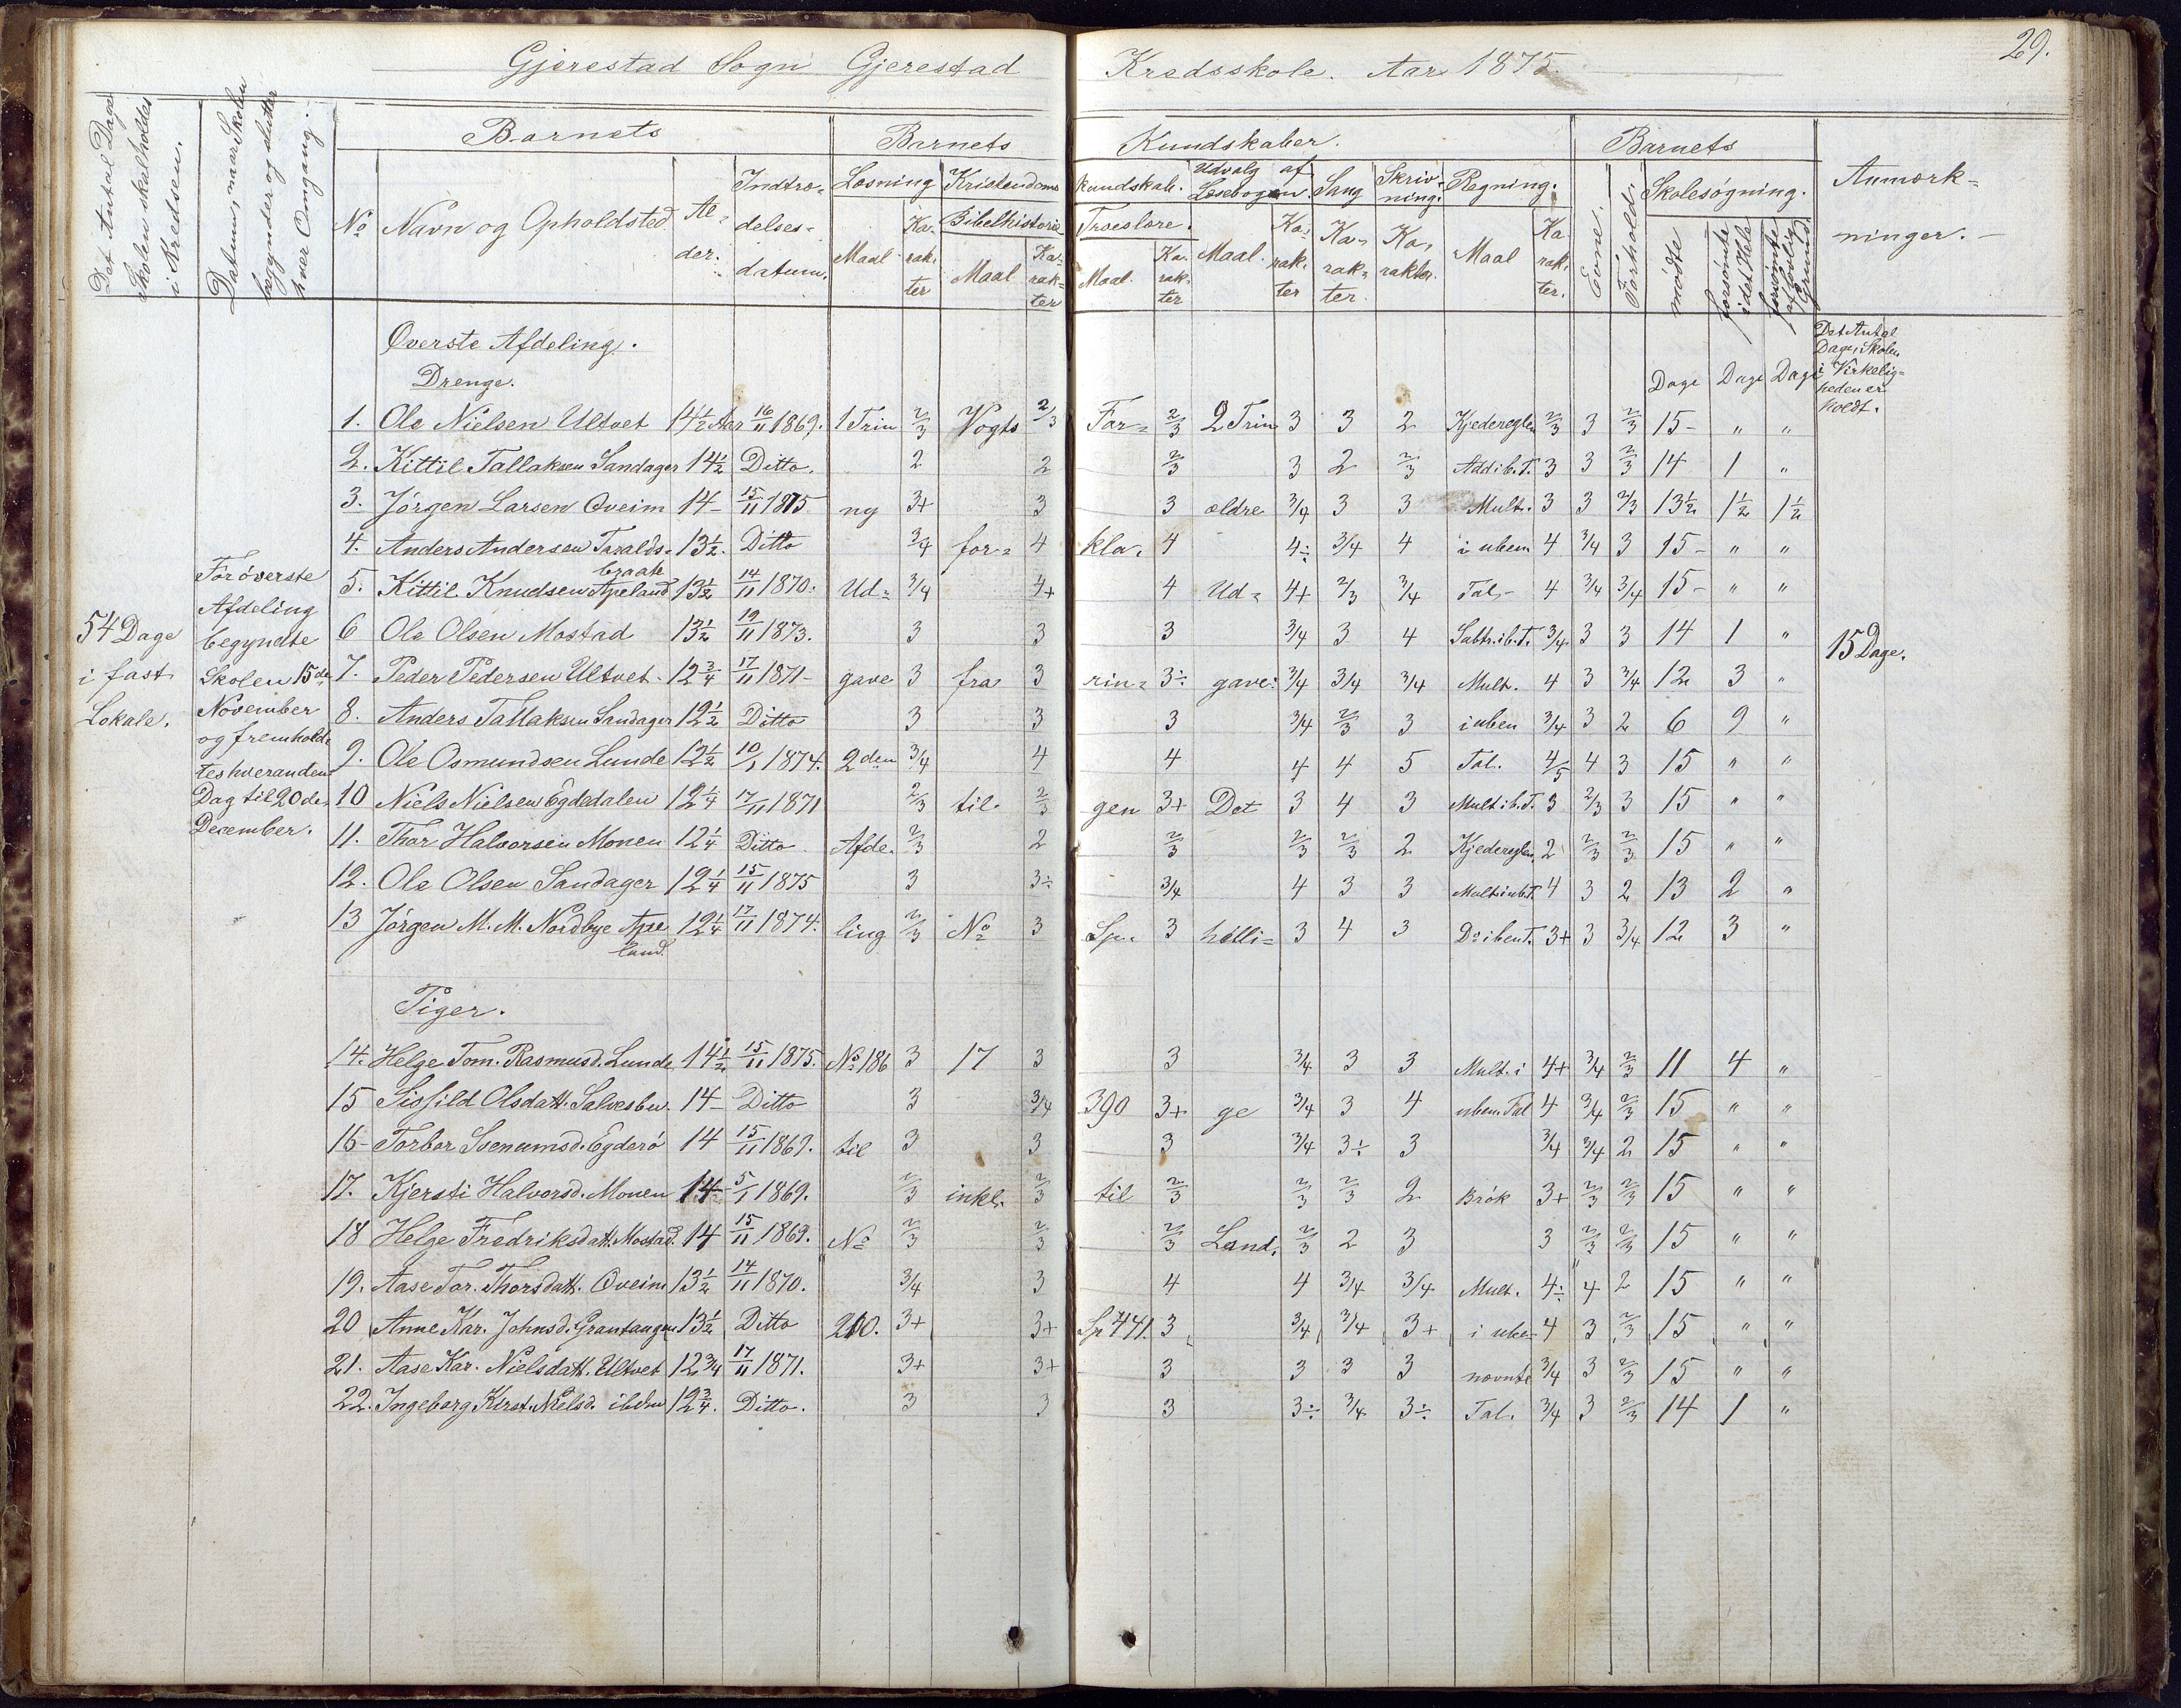 Gjerestad Sogn Gjerestad Kredsskole. Aar 1875.
29.
Det Antal Dage
Skolen skal holdes
i Kredsen.
Datum, naar Skolen
begynder og slutter
hver Omgang.
Barnets
No Navn og Opholdsted
Al-
der.
Indtræ-
delses-
datum.
Barnets Kundskaber.
Læsning
Maal
Ka-
rak-
ter
Kristendoms kundskab.
Bibelhistorie
Maal
Ka-
rak-
ter
Troeslære.
Maal.
Ka-
rak-
ter
Udvalg af
Læsebogen.
Maal.
Ka-
rak-
ter
Sang
Ka-
rak-
ter.
Skriv-
ning.
Ka-
rakter.
Regning.
Maal
Ka-
rak-
ter.
Barnets
Evne.
Forhold.
Skolesøgning.
mødte
forsømte
i det Hele
forsømte
af lovlig
Grund
Anmærk-
ninger.
54 Dage
i fast
Lokale.
For øverste
Afdeling
begyndte
Skolen 15de
November
og fremhold-
tes hveranden
Dag til 20de
December.
Øverste Afdeling.
Drenge.
Dage Dage Dage
Det Antal
Dage, Skolen
i Virkelig-
heden er
holdt.
1. Ole Nielsen Ultvet 14 1/2 Aar 16/11 1869. 1 Trin 2/3 Vogts 2/3 For- 2/3 2 Trin 3 3 2 Kjedereglen 2/3 3 2/3 15 - " "
2. Kittil Tallaksen Sandager 14 1/2 Ditto. 2 2 2/3 3 2 2/3 Add i b. T. 3 3 2/3 14 1 "
3. Jørgen Larsen Øveim 14 - 15/11 1875 og 3+ 3 3 ældre 3/4 3 3 Mult. 3 3 2/3 13 1/2 1 1/2 1 1/2
4. Anders Andersen Taralds- 13 1/2. Ditto 3/4 for- 4 kla- 4 4÷ 3/4 4 i uben 4 3/4 3 15 - " "
braate
5. Kittil Knudsen Apeland 13 1/2 14/11 1870. Ud- 3/4 4+ 4 Ud- 4+ 2/3 3/4 Tal - 4 3/4 3/4 15 - " "
6 Ole Olsen Mostad 13 1/2 19/11 1873. 3 3 3 3/4 3 4 Subtr. i b. T. 3/4 3 3 14 1 "
15 Dage.
7. Peder Pedersen Ultvet - 12 3/4 17/11 1871 - gave 3 fra 3 rin- 3÷ gave: 3/4 3/4 3/4 Mult. 4 3 3/4 12 3 "
8. Anders Tallaksen Sandager 12 1/2 Ditto 3 3 3 3/4 2/3 3 i uben 3/4 3 2 6 9 "
9. Ole Osmundsen Lunde 12 1/2 10/1 1874. 2den 3/4 4 4 4 4 5 Tal. 4/5 4 3 15 " "
10 Niels Nielsen Egdedalen 12 1/4 17/11 1871 2/3 til 2/3 gen 3+ Det 3 4 3 Mult i b. T. 3 2/3 3 15 " "
11. Thor Halvorsen Monen 12 1/4 Ditto Afde- 2/3 2 2/3 2/3 2/3 2 Kjedereglen 2 2/3 2/3 15 " "
12. Ole Olsen Sandager 12 1/4 15/11 1875 3 3÷ 3/4 4 3 3 Mult i ub. T. 4 3 2 13 2 "
13 Jørgen M. M. Nordbye Ape 12 1/4 17/11 1874. ling 2/3 No 3 Sp. 3 helli- 3 4 3 Do i ben T. 3+ 3 3/4 12 3 "
land.
Piger.
14. Helge Tom. Rasmusd. Lunde 14 1/2 15/11 1875. No 186 3 17 3 3 3/4 3 3 Mult. i 4+ 3/4 2/3 11 4 "
15 Olsdatt. 14 - Ditto 3 3/4 390 3+ ge 3/4 3 4 uben. Tal 4 3/4 2/3 15 " "
16 - Torbor Svenumsd. Egderø 14 15/11 1869. til 3 3 3 3/4 3÷ 3 3/4 3/4 2 15 " "
17. Kjersti Halvorsd. Monen 14 - 5/1 1869. 2/3 inkl. 2/3 til 2/3 2/3 2/3 2 Brøk 3+ 2/3 2/3 15 " "
18 Helge Fredriksdatt. Mostad. 14 15/11 1869. No 2/3 2/3 2/3 Land. 2/3 2 3 3 2/3 2/3 15 " "
19. Aase Tor. Thorsdatt. Øveim 13 1/2 14/11 1870. 3/4 3 4 4 3/4 3/4 Mult. 4÷ 4 2 15 " "
20 Anne Kar. Johnsd. Grantangen 13 1/2 Ditto 210. 3+ 3+ Sp 441. 3 3/4 3/4 3+ i uben 4 3 2/3 15 " "
21. Aase Kar. Nielsdatt. Ultvet 12 3/4 17/11 1871. 3+ 3+ 3 3 3 3 nævnte 3/4 3 2/3 15 " "
22. Ingeborg Kirst. Nielsd. ibdm 12 3/4. Ditto. 3 3 3 3÷ 3/4 3÷ Tal. 3/4 3 2/3 14 1 "